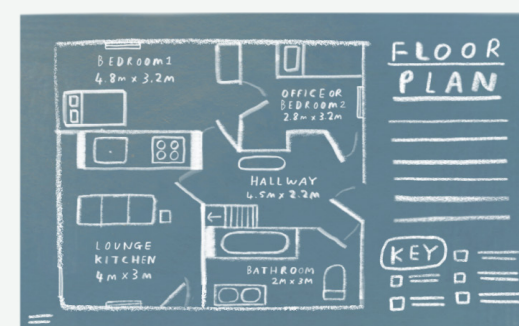 BEDROOM1
4.8m x 3.2m
OFFICE OR
BEDROOM2
2.8m x 3.2m
HALLWAY
4.5m x 2.2m
LOUNGE
KITCHEN
4m x 3m
BATHROOM
2m x 3m
FLOOR
PLAN
KEY